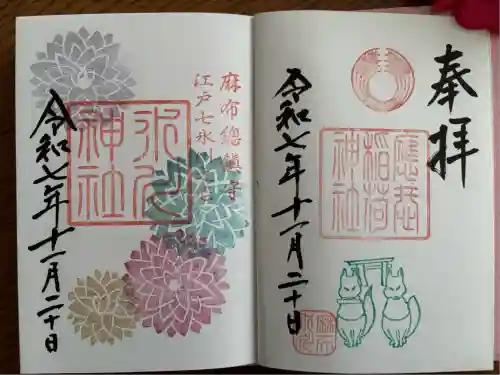 奉拝
應恭
稲荷
神社
令和七年十一月二十日
麻布總鎮守
江戸七氷川
氷川
神社
令和七年十一月二十日